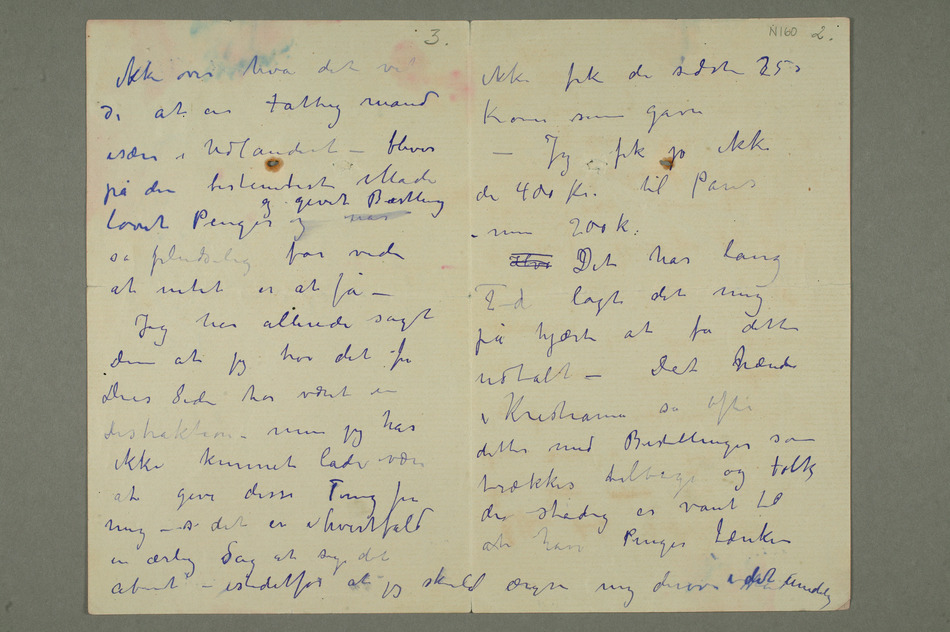 N160 2.
ikke fik de sidste 250
Kroner som gave
– Jeg fik jo ikke
de 400 Kr. til Paris
– men 200 k:
Det har lang
Tid lagt det mig
på hjærte at få dette
udtalt – Det hænder
i Kristiania så ofte
dette med Bestillinger som
trækkes tilbage og Folk
der stadig er vant til
at have Penger tænker
3.
ikke over hva det vil
si at en fattig mand
især i Udlandet – bliver
på den bestemteste Måde
lovet Penger og givet Bestilling
så pludselig får vide
at intet er at få –
Jeg har allerede sagt
Dem at jeg tror det fra
Deres Side har været en
distraktion – men jeg har
ikke kunnet lade være
at give disse Ting fra
mig – så det er i hvertfald
en ærlig Sag at sige det
åbent – istedetfor at jeg skuld ærgre mig derover i det uendelig